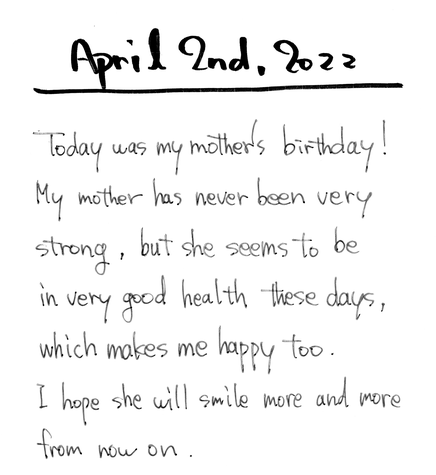 April 2nd, 2022
Today was my mother's birthday!
My mother has never been very
strong, but she seems to be
in very good health these days,
which makes me happy too.
I hope she will smile more and more
from now on.